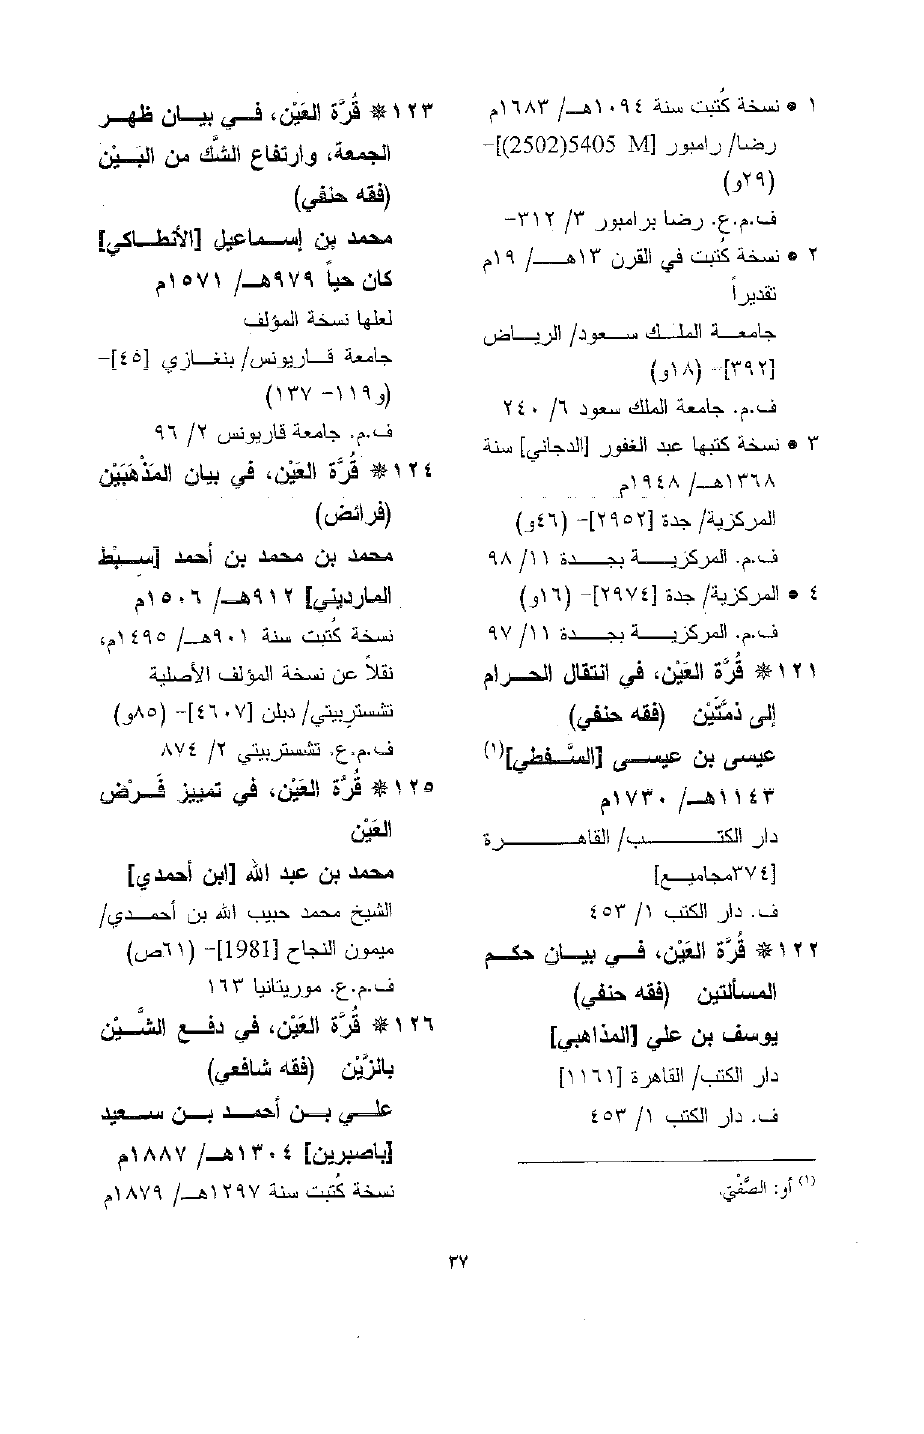 ١ * نسخة كُتبت سنة ١٠٩٤هـ/ ١٦٨٣م
رضا/ رامبور [5405 M(2502)]-
(٢٩و)
ف.م.ع. رضا برامبور ٣/ ٣١٢-
٢ * نسخة كُتبت في القرن ١٣هـ/ ١٩م
تقديراً
جامعة الملك سعود/ الرياض
[٣٩٢]- (١٨و)
ف.م. جامعة الملك سعود ٦/ ٢٤٠
٣ * نسخة كتبها عبد الغفور [الدجاني] سنة
١٣٦٨هـ/ ١٩٤٨م
المركزية/ جدة [٢٩٥٢]- (٤٦و)
ف.م. المركزية بجدة ١١/ ٩٨
٤ * المركزية/ جدة [٢٩٧٤]- (١٦و)
ف.م. المركزية بجدة ١١/ ٩٧
١٢١ * قُرَّة العَيْن، في انتقال الحرام
إلى ذمَّتَيْن (فقه حنفي)
عيسى بن عيسى [السَّفطي](١)
١١٤٣هـ/ ١٧٣٠م
دار الكتب/ القاهرة
[٣٧٤مجاميع]
ف. دار الكتب ١/ ٤٥٣
١٢٢ * قُرَّة العَيْن، في بيان حكم
المسألتين (فقه حنفي)
يوسف بن علي [المذاهبي]
دار الكتب/ القاهرة [١١٦١]
ف. دار الكتب ١/ ٤٥٣
(١) أو: الصَّفْتيّ.
١٢٣ * قُرَّة العَيْن، في بيان ظهر
الجمعة، وارتفاع الشَّك من البَيْن
(فقه حنفي)
محمد بن إسماعيل [الأنطاكي]
كان حياً ٩٧٩هـ/ ١٥٧١م
لعلها نسخة المؤلف
جامعة قاريونس/ بنغازي [٤٥]-
(و١١٩- ١٣٧)
ف.م. جامعة قاريونس ٢/ ٩٦
١٢٤ * قُرَّة العَيْن، في بيان المَذْهَبَيْن
(فرائض)
محمد بن محمد بن أحمد [سِبْط
المارديني] ٩١٢هـ/ ١٥٠٦م
نسخة كُتبت سنة ٩٠١هـ/ ١٤٩٥م،
نقلاً عن نسخة المؤلف الأصلية
تشستربيتي/ دبلن [٤٦٠٧]- (٨٥و)
ف.م.ع. تشستربيتي ٢/ ٨٧٤
١٢٥ * قُرَّة العَيْن، في تمييز فَرْض
العَيْن
محمد بن عبد الله [ابن أحمدي]
الشيخ محمد حبيب الله بن أحمدي/
ميمون النجاح [1981]- (٦١ص)
ف.م.ع. موريتانيا ١٦٣
١٢٦ * قُرَّة العَيْن، في دفع الشَّيْن
بالزَّيْن (فقه شافعي)
علي بن أحمد بن سعيد
[باصبرين] ١٣٠٤هـ/ ١٨٨٧م
نسخة كُتبت سنة ١٢٩٧هـ/ ١٨٧٩م
٣٧